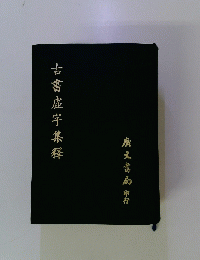 古書虛字集釋
廣文書局印行